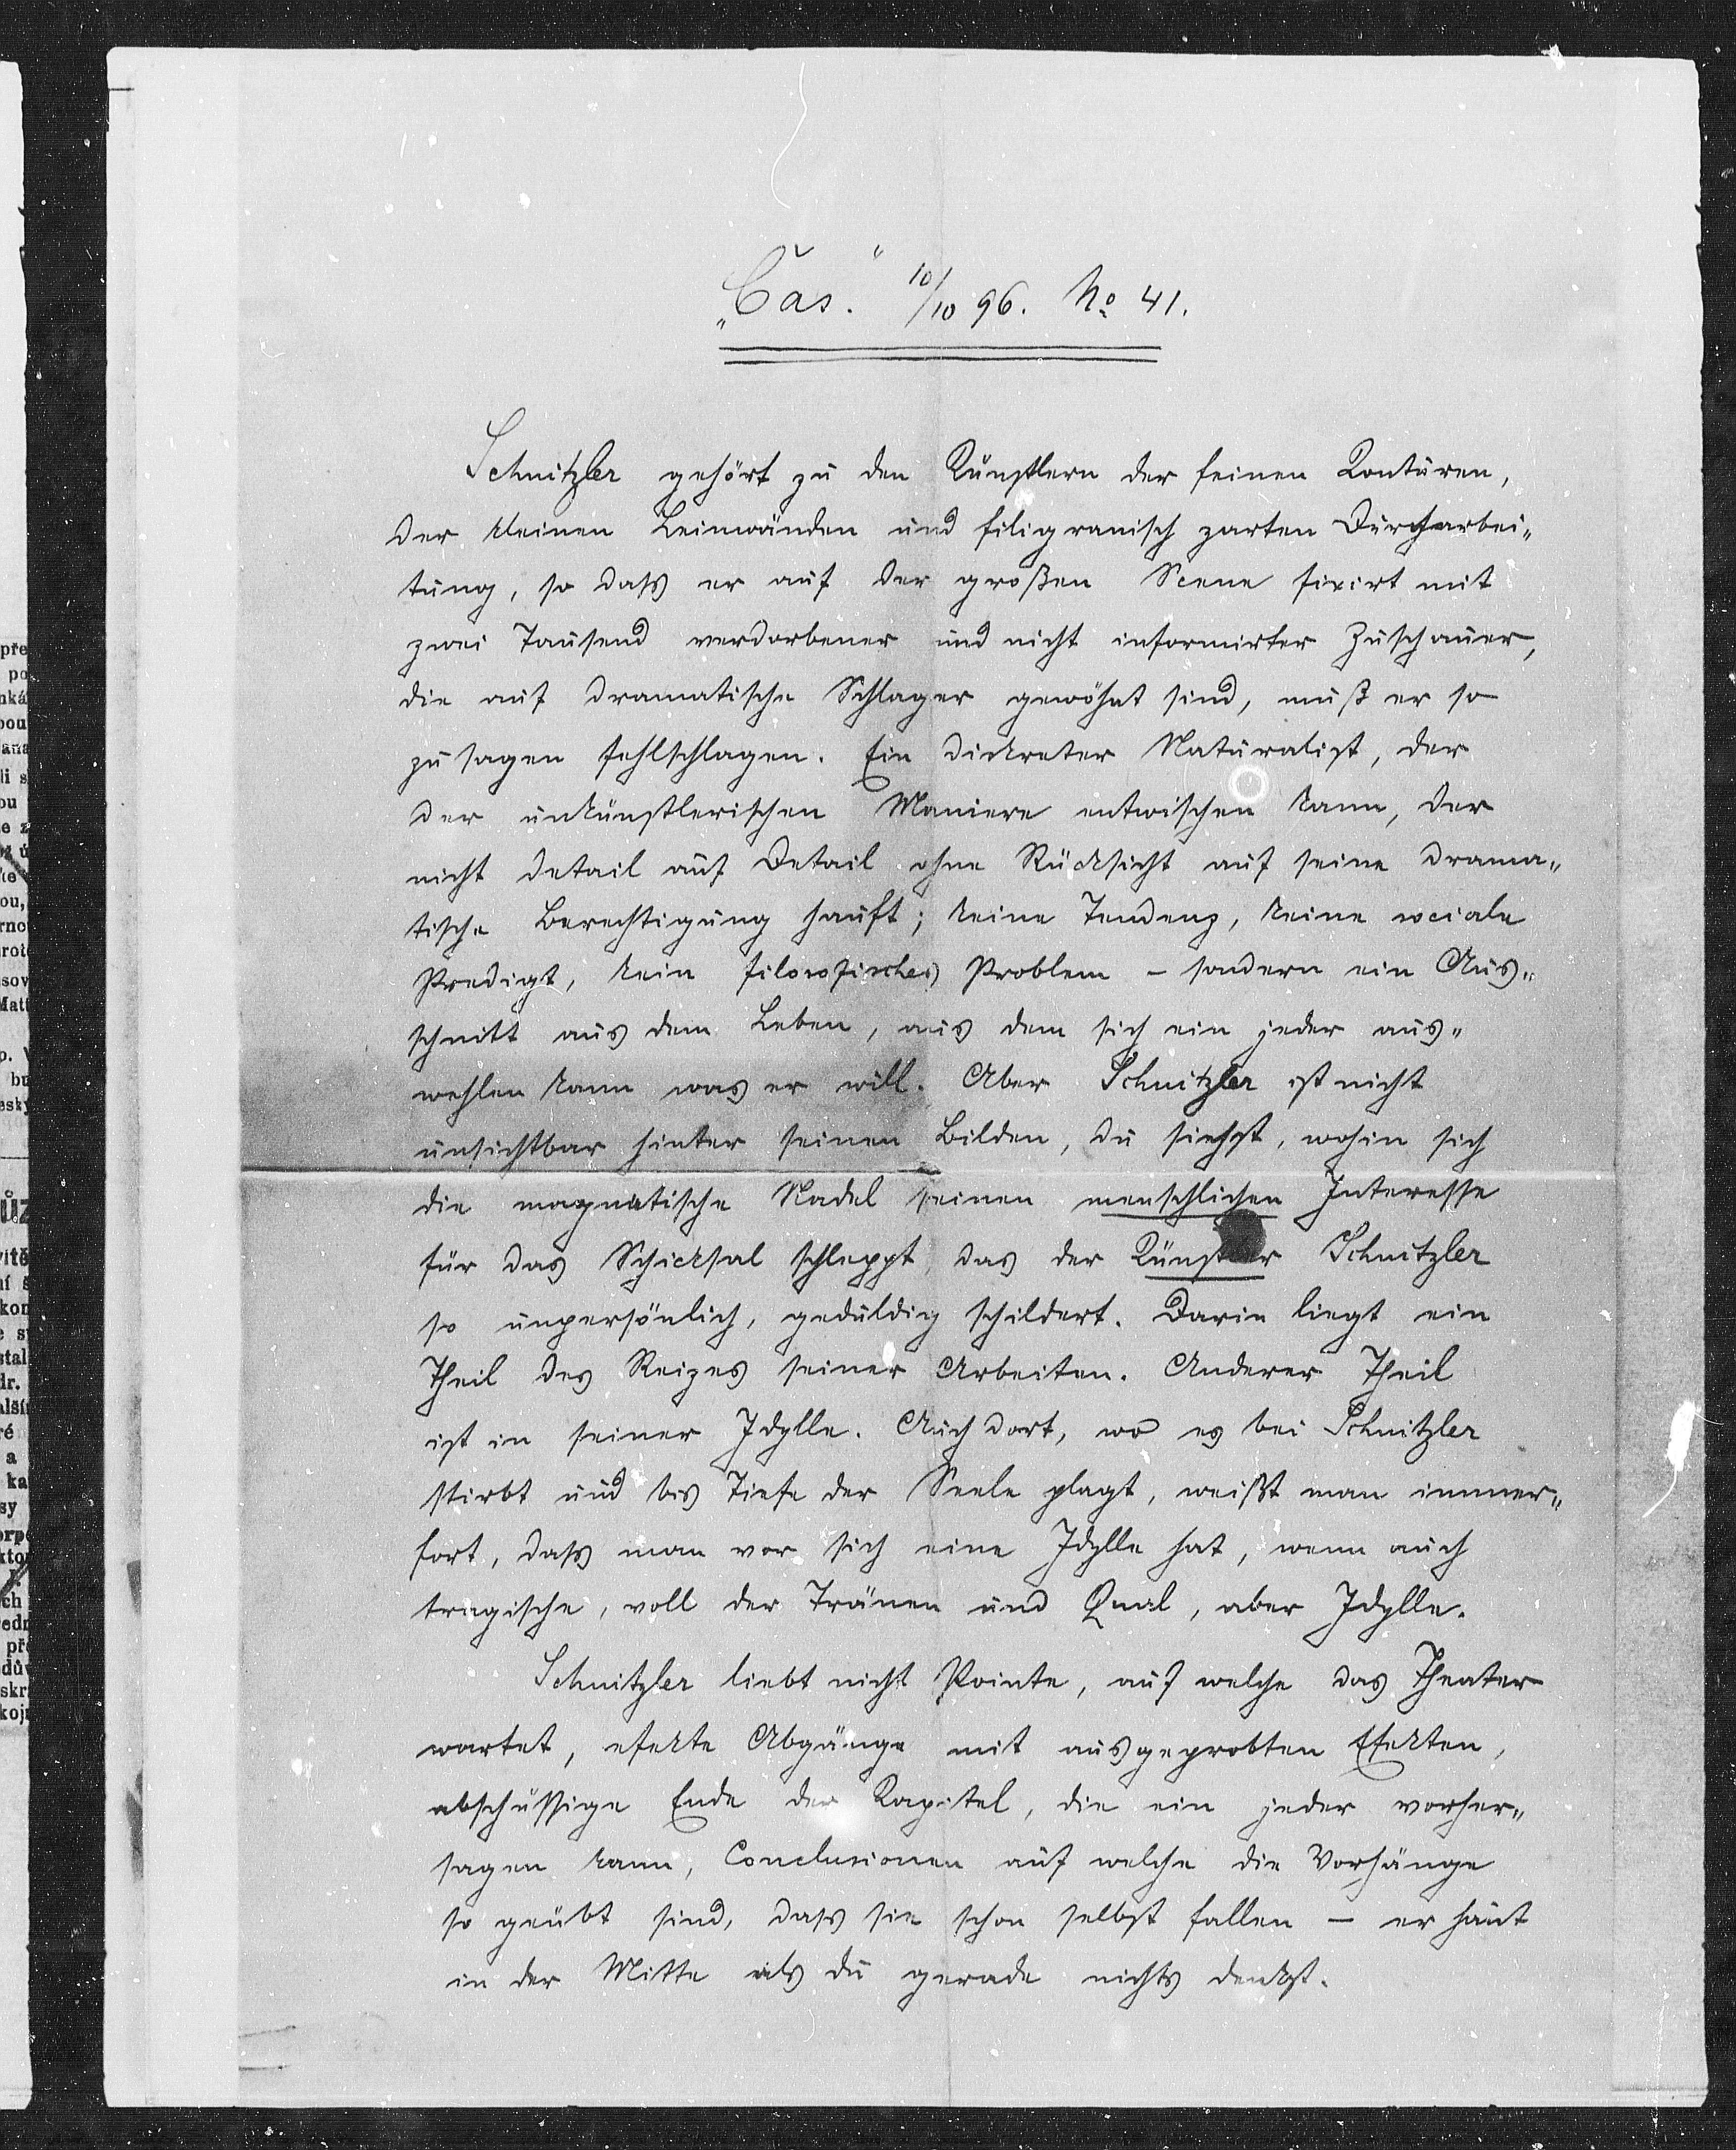 „Čas.“ 10/10 96. No 41.
Schnitzler gehört zu den Künstlern der feinen Konturen,
der kleinen Leinwänden und filigranisch zarten Durcharbei-
tung, so dass er auf der großen Scene fixirt mit
zwei Tausend verdorbener und nicht informirter Zuschauer,
die auf dramatische Schlager gewöhnt sind, muß er so
zu sagen fehlschlagen. Ein diskreter Naturalist, der
der unkünstlerischen Maniere entwischen kann, der
nicht detail auf Detail ohne Rücksicht auf seine drama-
tische Berechtigung hauft; keine Tendenz, keine sociale
Predigt, kein filosofisches Problem – sondern ein Aus-
schnitt aus dem Leben, aus dem sich ein jeder aus-
wehlen kann was er will. Aber Schnitzler ist nicht
unsichtbar hinter seinen Bilden, du siehst, wohin sich
die magnetische Nadel seinen menschlichen Interesse
für das Schicksal schleppt, das der Künstler Schnitzler
so unpersönlich, geduldig schildert. Darin liegt ein
Theil des Reizes seiner Arbeiten. Anderer Theil
ist in seiner Idylle. Auch dort, wo es bei Schnitzler
stirbt und bis Tiefe der Seele plagt, weißt man immer-
fort, dass man vor sich eine Idylle hat, wenn auch
tragische, voll der Tränen und Qual, aber Idylle.
Schnitzler liebt nicht Pointe, auf welche das Theater
wartet, efekte Abgänge mit ausgeprobten Efekten,
abschüssige Ende der Kapitel, die ein jeder vorher-
sagen kann, Conclusionen auf welche die Vorhänge
so geübt sind, dass sie schon selbst fallen – er haut
in der Mitte als du gerade nichts denkst.